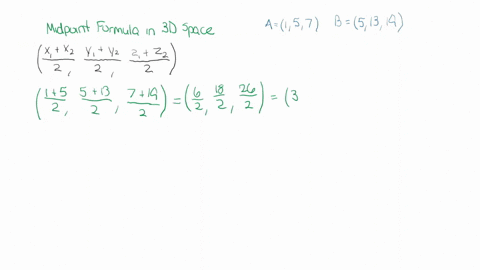 Midpoint Formula in 3D Space
A=(1,5,7) B=(5,13,19)
(x₁+x₂/2, y₁+y₂/2, z₁+z₂/2)
(1+5/2, 5+13/2, 7+19/2) = (6/2, 18/2, 26/2) = (3